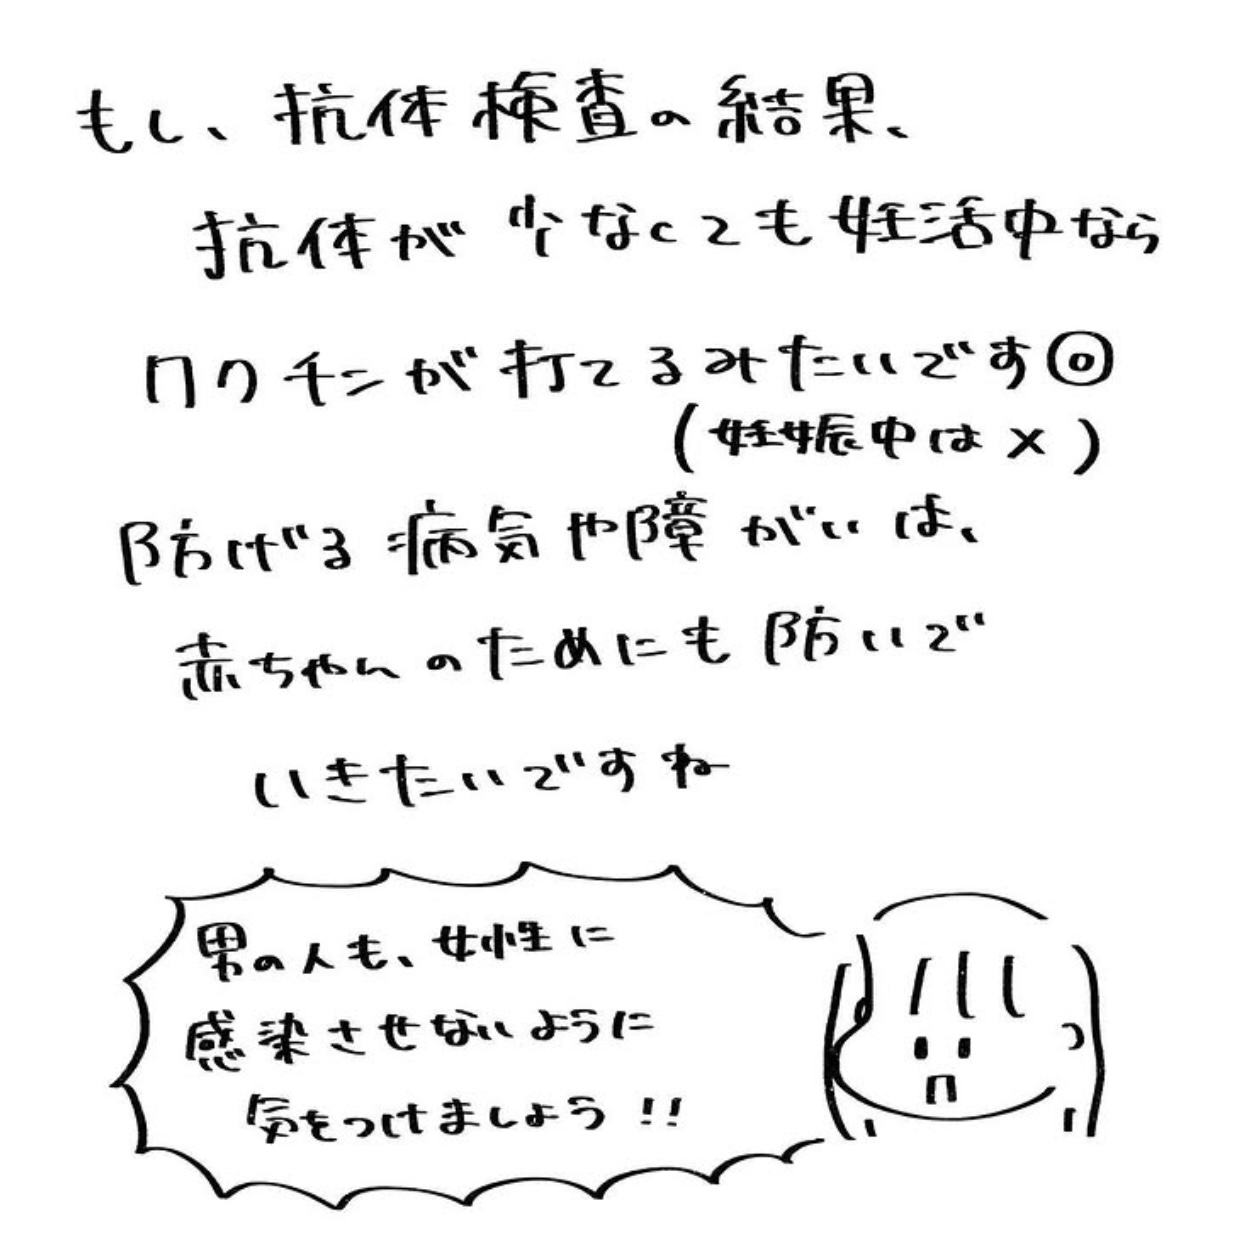 もし、抗体検査の結果、
抗体が少なくても妊活中なら
ワクチンが打てるみたいです◎
(妊娠中は×)
防げる病気や障がいは、
赤ちゃんのためにも防いで
いきたいですね
男の人も、女性に
感染させないように
気をつけましょう!!